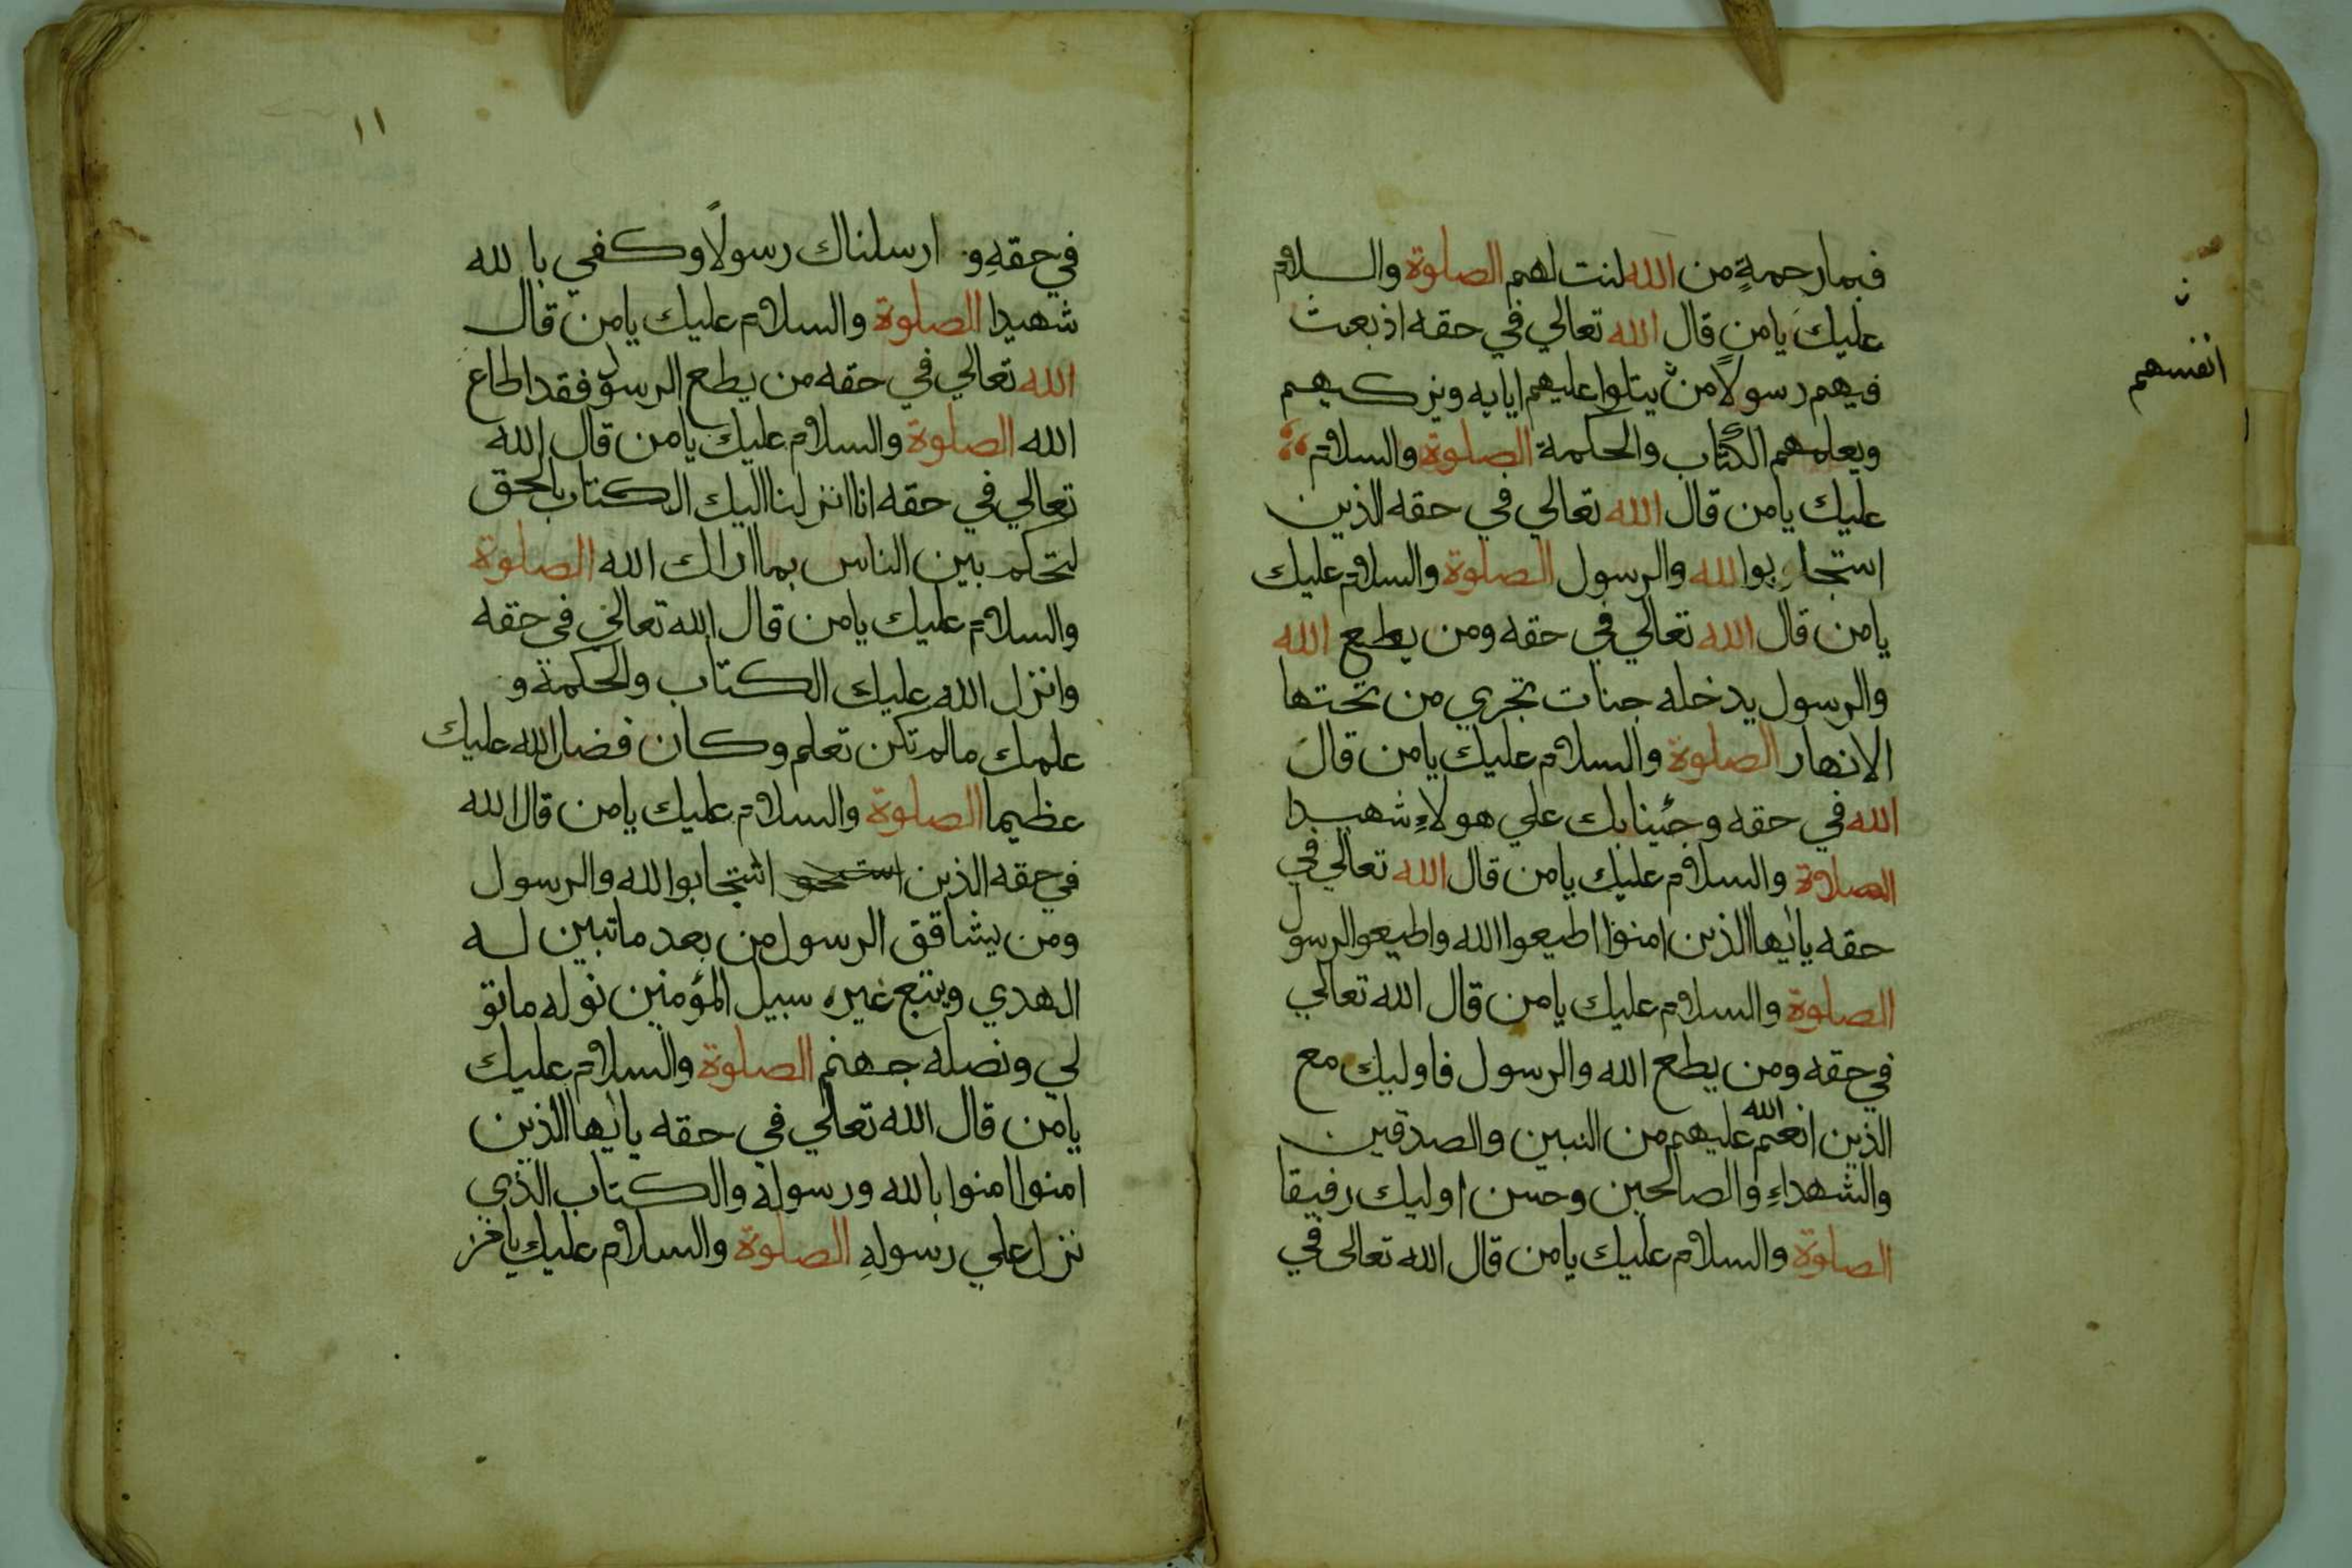 فبما رحمةٍ من الله لنت لهم الصلوة والسلام
عليك يا من قال الله تعالي في حقه اذ بعث
فيهم رسولاً من يتلوا عليهم اياته ويزكيهم
انفسهم
ويعلمهم الكتاب والحكمة الصلوة والسلام
عليك يا من قال الله تعالي في حقه الذين
استجابوا لله والرسول الصلوة والسلام عليك
يا من قال الله تعالي في حقه ومن يطع الله
والرسول يدخله جنات تجري من تحتها
الانهار الصلوة والسلام عليك يا من قال
الله في حقه وجئنا بك علي هولاءِ شهيدا
الصلاة والسلام عليك يا من قال الله تعالي في
حقه يا ايها الذين امنوا اطيعوا الله واطيعو الرسول
الصلوة والسلام عليك يا من قال الله تعالي
في حقه ومن يطع الله والرسول فاوليك مع
الذين انعم الله عليهم من النبين والصدقين
والشهداءِ والصالحين وحسن اوليك رفيقا
الصلوة والسلام عليك يا من قال الله تعالى في
١١
في حقهِ و ارسلناك رسولاً وكفي بالله
شهيدا الصلوة والسلام عليك يا من قال
الله تعالي في حقه من يطع الرسول فقد اطاع
الله الصلوة والسلام عليك يا من قال الله
تعالي في حقه انا انزلنا اليك الكتاب بالحق
لتحكم بين الناس بما اراك الله الصلوة
والسلام عليك يا من قال الله تعالي في حقه
وانزل الله عليك الكتاب والحكمة و
علمك ما لم تكن تعلم وكان فضل الله عليك
عظيما الصلوة والسلام عليك يا من قال الله
في حقه الذين استجابوا لله والرسول
ومن يشاقق الرسول من بعد ما تبين له
الهدي ويتبع غيره سبيل المؤمنين نوله ما تو
لي ونصله جهنم الصلوة والسلام عليك
يا من قال الله تعالي في حقه يا ايها الذين
امنوا امنوا بالله ورسوله والكتاب الذي
نزل علي رسولهِ الصلوة والسلام عليك يا من